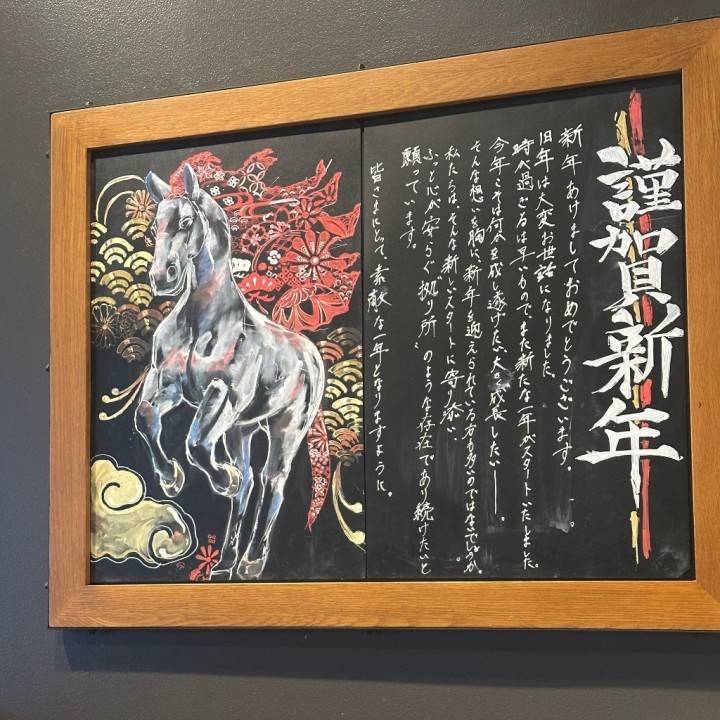 謹賀新年
新年あけましておめでとうございます。
旧年は大変お世話になりました。
時が過ぎるは早いもので、また新たな一年がスタートいたしました。
今年こそは何かを成し遂げたい、大きく成長したい―。
そんな想いを胸に、新年を迎えられている方も多いのではないでしょうか。
私たちは、そんな新しいスタートに寄り添い、
ふっと心が安らぐ"拠り所"のような存在であり続けたいと
願っています。
皆さまにとって素敵な一年となりますように。